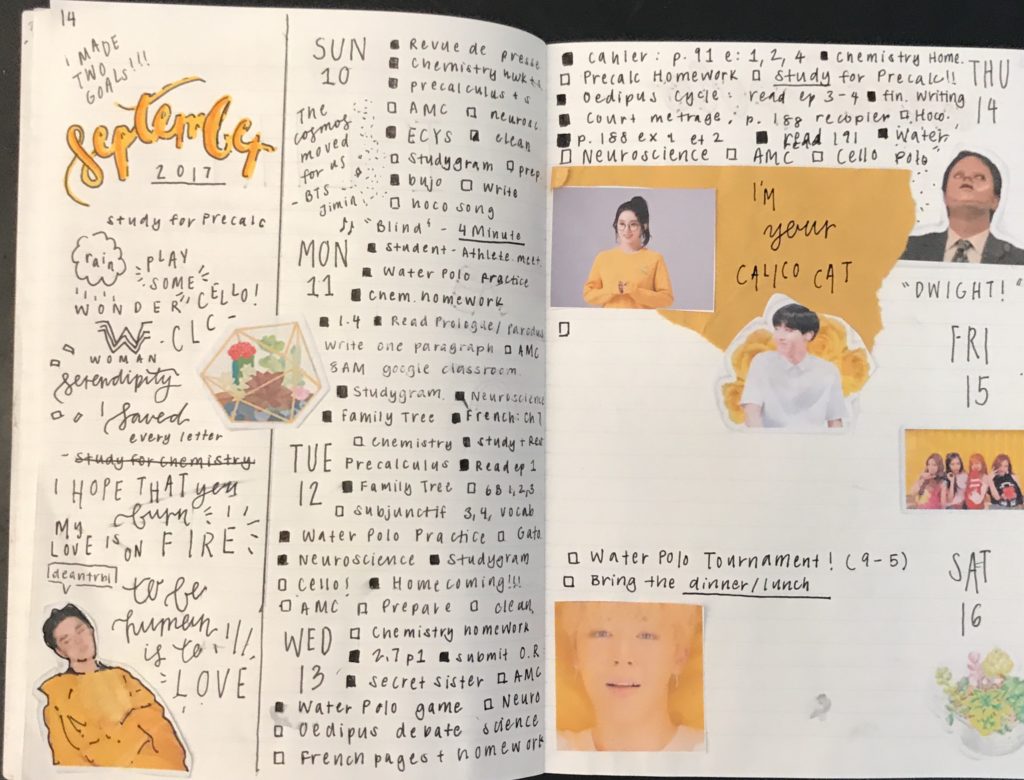 14
I MADE
TWO
GOALS!!!
september
2017
study for Precalc
rain
PLAY
SOME
CELLO!
WONDER
CLC -
WOMAN
serendipity
I saved
every letter
- Study for chemistry
I HOPE THAT you
burn
MY
LOVE IS ON FIRE
deantrbl
to be
human
is to
LOVE
SUN
10
The
cosmos
moved
for us
- BTS
jimin
Revue de presse
Chemistry hwk + s
precalculus + s
AMC neurosc
ECYS clean
Studygram prep.
bujo Write
hoco song
"Blind" - 4 Minute
MON
11
Student-Athlete meet.
Water Polo Practice
Chem. homework
1-4 Read Prologue/
Write one paragraph AMC
8AM google classroom.
Studygram. Neuroscience
Family Tree French: Ch 7
TUE
12
Chemistry study + Read
Precalculus Read ep 1
Family Tree 6B 1,2,3
Subjunctif 3,4, vocab
Water Polo Practice Gato.
Neuroscience Studygram
Cello! Homecoming!!!
AMC Prepare clean,
WED
13
Chemistry homework
2.7 p1 submit O.R
secret sister AMC
Water Polo game Neuro
Oedipus debate science
French pages + homework
THU
14
cahier: p. 91 e: 1, 2, 4 Chemistry Home.
Precalc Homework study for Precalc!!
Oedipus Cycle: read ep 3-4 fin. writing
Court metrage: p. 188 recopier Hoco.
p. 188 ex 1 et 2 read 191 Water
Neuroscience AMC Cello Polo
I'M
your
CALICO CAT
"DWIGHT!"
FRI
15
SAT
16
Water Polo Tournament! (9-5)
Bring the dinner/lunch